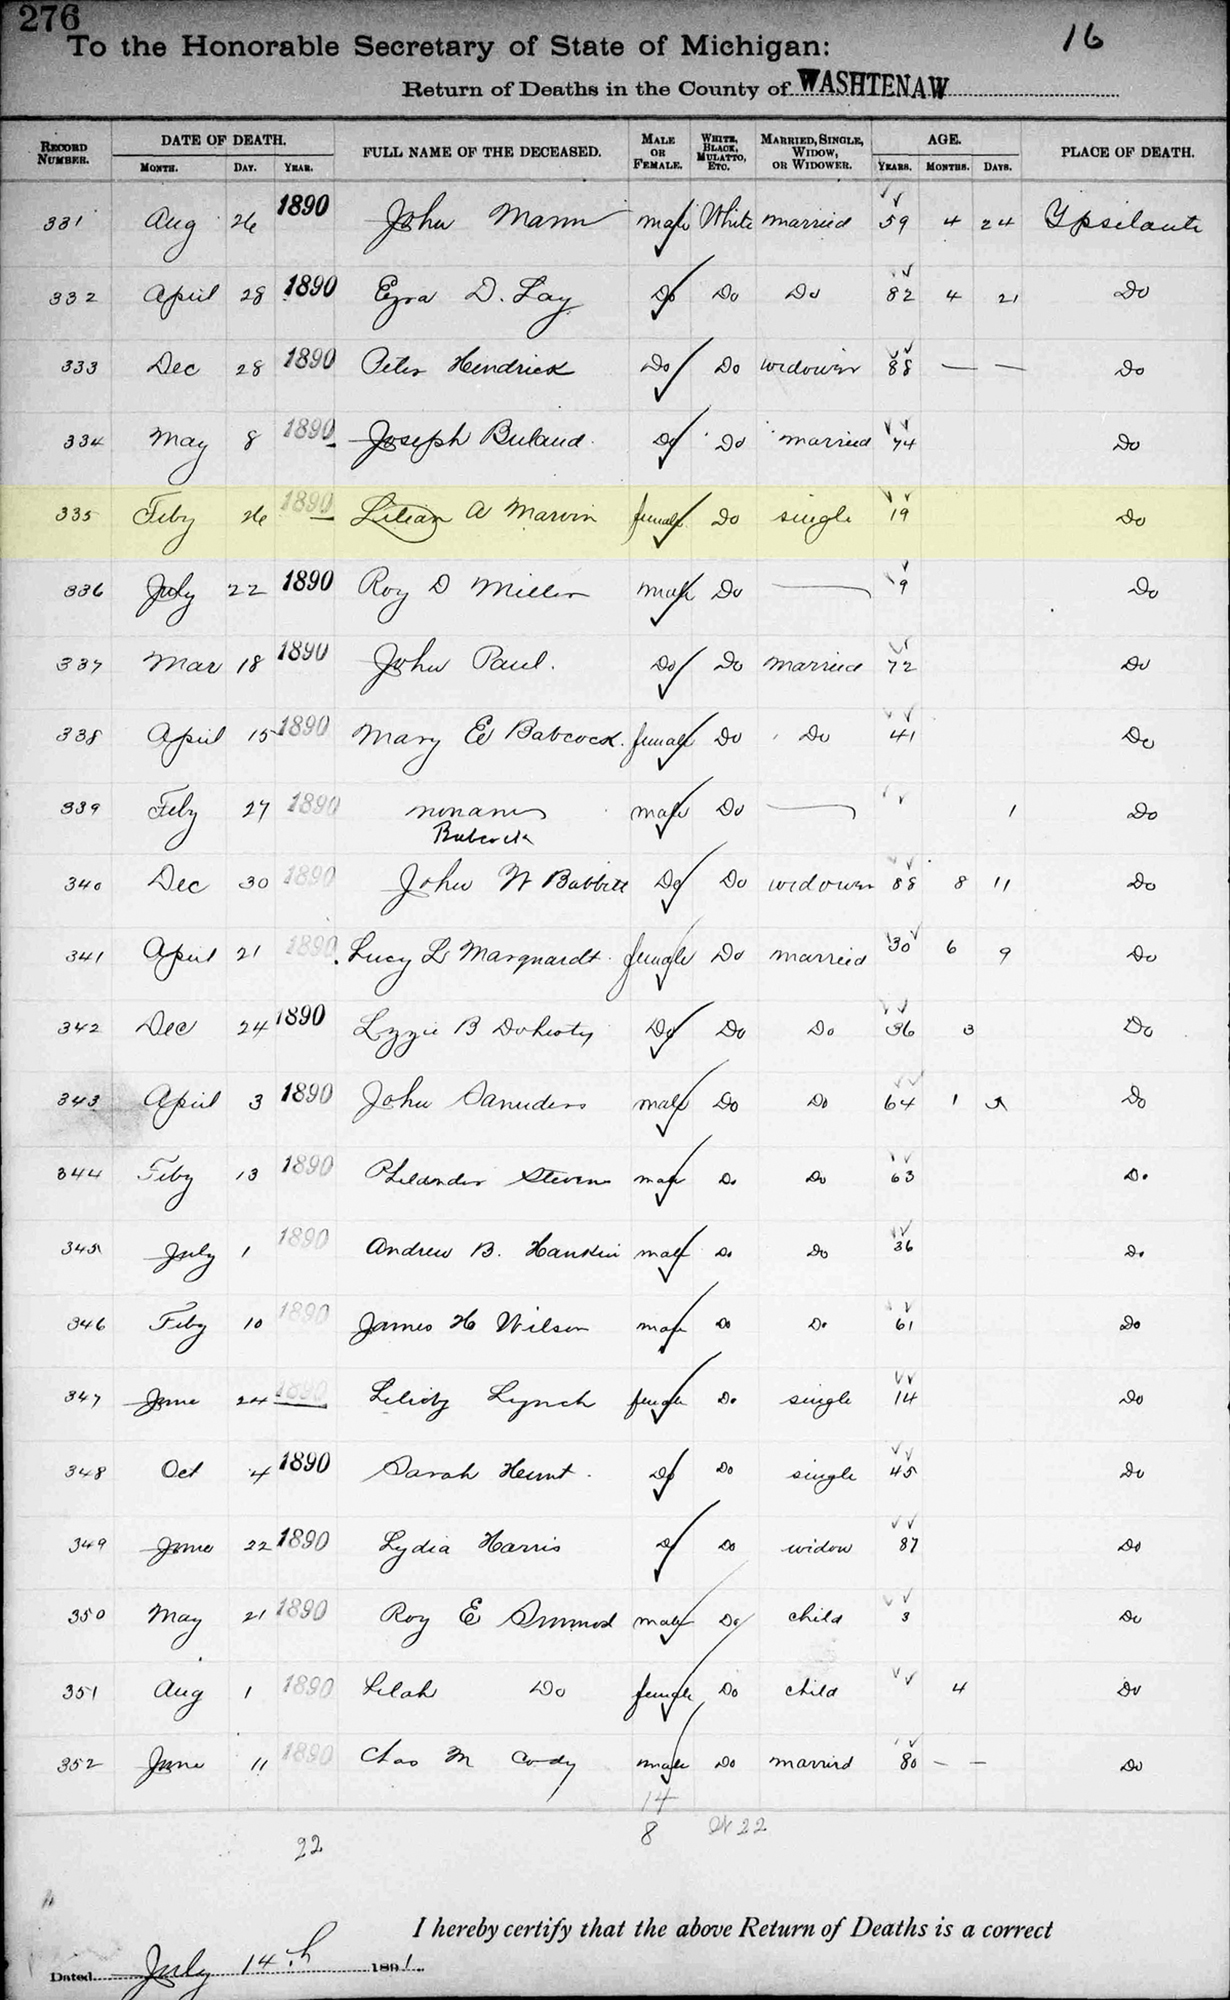 276
To the Honorable Secretary of State of Michigan: 16
Return of Deaths in the County of WASHTENAW
RECORD NUMBER. DATE OF DEATH. MONTH. DAY. YEAR. FULL NAME OF THE DECEASED. MALE OR FEMALE. WHITE, BLACK, MULATTO, ETC. MARRIED, SINGLE, WIDOW, OR WIDOWER. AGE. YEARS. MONTHS. DAYS. PLACE OF DEATH.
331 Aug 26 1890 John Mann male White married 59 4 24 Ypsilanti
332 April 28 1890 Ezra D. Lay Do Do Do 82 4 21 Do
333 Dec 28 1890 Peter Hendrick Do Do widower 88 — — Do
334 May 8 1890 Joseph Do Do married 74 Do
335 Feby 26 1890 Lilian A Marvin female Do single 19 Do
336 July 22 1890 Roy D Miller male Do — 9 Do
337 Mar 18 1890 John Paul. Do Do married 72 Do
338 April 15 1890 Mary E Babcock. female Do Do 41 Do
339 Feby 27 1890 noname male Do — 1 Do
Babcock
340 Dec 30 1890 John W Babbitt Do Do widower 88 8 11 Do
341 April 21 1890 Lucy L Marquardt female Do married 30 6 9 Do
342 Dec 24 1890 Lizzie B Doherty Do Do Do 36 3 Do
343 April 3 1890 John Sanders male Do Do 64 1 Do
344 Feby 13 1890 Philander Stevens male Do Do 63 Do
345 July 1 1890 Andrew B. male Do Do 36 Do
346 Feby 10 1890 James H Wilson male Do Do 61 Do
347 June 24 1890 Lynch female Do single 14 Do
348 Oct 4 1890 Sarah Do Do single 45 Do
349 June 22 1890 Lydia Harris Do Do widow 87 Do
350 May 21 1890 Roy E male Do child 3 Do
351 Aug 1 1890 Lilah Do female Do child 4 Do
352 June 11 1890 Chas M Cody male Do married 80 — — Do
14
22 8 W 22
I hereby certify that the above Return of Deaths is a correct
Dated July 14th 1891.